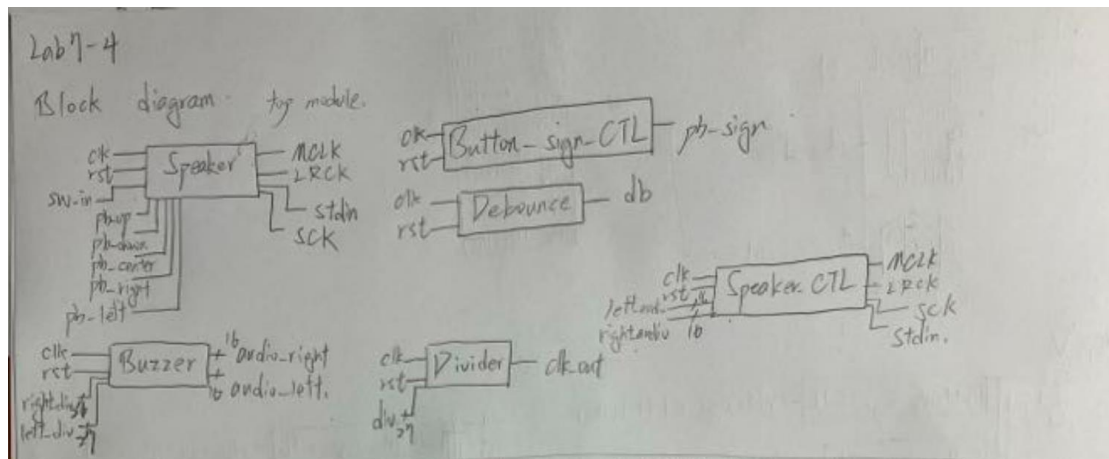 Lab7-4
Block diagram. top module.
clk
rst
sw-in
pb-up
pb-down
pb-center
pb-right
pb-left
Speaker
MCLK
LRCK
stdin
SCK
clk
rst
Button_sign_CTL
pb-sign
clk
rst
Debounce
db
clk
rst
16
rightaudio 16
Speaker CTL
MCLK
LRCK
SCK
Stdin.
clk
rst
left_div
Buzzer
16 audio_right
16 audio_left.
clk
rst
div 27
Divider
clk_out